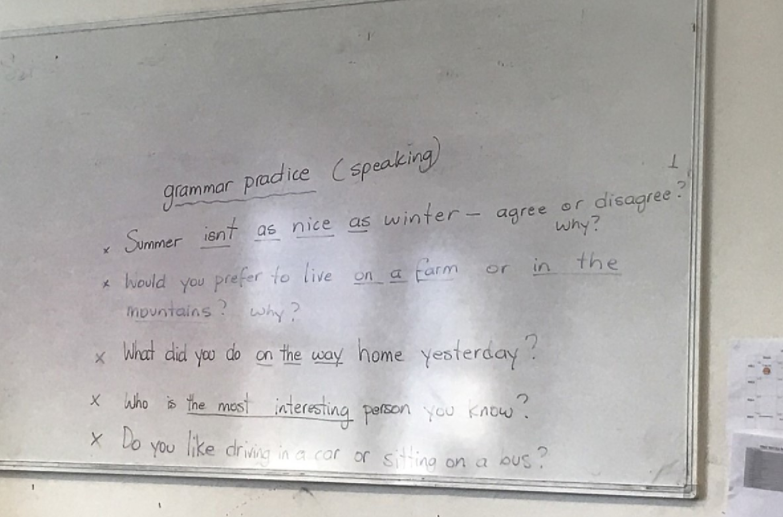 grammar practice (speaking)
x Summer isnt as nice as winter – agree or disagree?
why?
x Would you prefer to live on a farm or in the
mountains? why?
x What did you do on the way home yesterday?
x Who is the most interesting person you know?
x Do you like driving in a car or sitting on a bus?